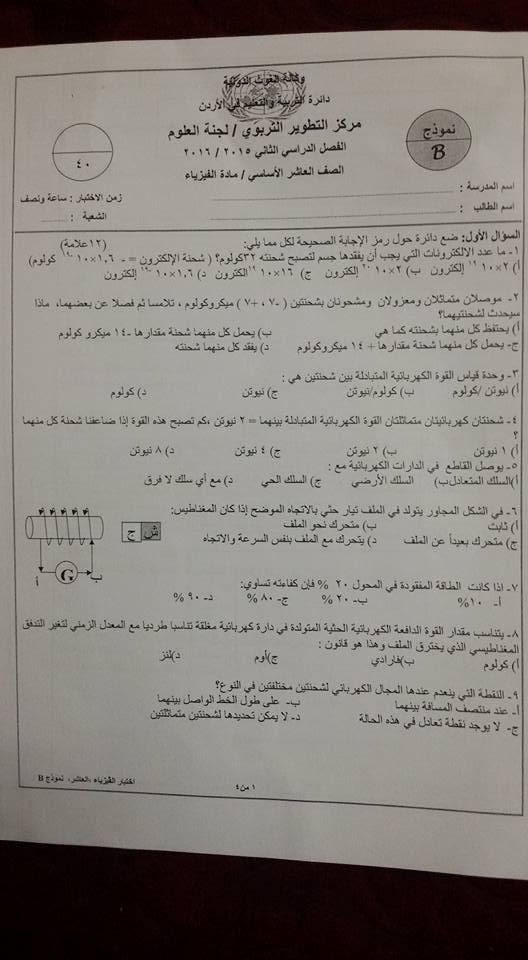 وكالة الغوث الدولية
دائرة التربية والتعليم في الأردن
مركز التطوير التربوي / لجنة العلوم
الفصل الدراسي الثاني ٢٠١٥ / ٢٠١٦
الصف العاشر الأساسي / مادة الفيزياء
نموذج
B
٤٠
اسم المدرسة :
زمن الاختبار : ساعة ونصف
اسم الطالب :
الشعبة :
السؤال الأول: ضع دائرة حول رمز الإجابة الصحيحة لكل مما يلي: (١٢علامة)
١- ما عدد الالكترونات التي يجب أن يفقدها جسم لتصبح شحنته ٣٢كولوم؟ ( شحنة الإلكترون = - ١,٦×١٠⁻¹⁹ كولوم)
أ) ٢×١٠¹⁹ إلكترون ب) ٢×١٠²⁰ إلكترون ج) ١٦×١٠¹⁹ الكترون د) ١,٦×١٠⁻¹⁹ إلكترون
٢- موصلان متماثلان ومعزولان ومشحونان بشحنتين ( -٧ ، +٧ ) ميكروكولوم ، تلامسا ثم فصلا عن بعضهما، ماذا
سيحدث لشحنتيهما؟
أ) يحتفظ كل منهما بشحنته كما هي ب) يحمل كل منهما شحنة مقدارها -١٤ ميكرو كولوم
ج- يحمل كل منهما شحنة مقدارها + ١٤ ميكروكولوم د) يفقد كل منهما شحنته
٣- وحدة قياس القوة الكهربائية المتبادلة بين شحنتين هي :
أ) نيوتن /كولوم ب) كولوم/نيوتن ج) نيوتن د) كولوم
٤- شحنتان كهربائيتان متماثلتان القوة الكهربائية المتبادلة بينهما = ٢ نيوتن ،كم تصبح هذه القوة إذا ضاعفنا شحنة كل منهما
؟
أ) ١ نيوتن ب) ٢ نيوتن ج) ٤ نيوتن د) ٨ نيوتن
٥- يوصل القاطع في الدارات الكهربائية مع :
أ)السلك المتعادل ب) السلك الأرضي ج) السلك الحي د) مع أي سلك لا فرق
٦- في الشكل المجاور يتولد في الملف تيار حثي بالاتجاه الموضح إذا كان المغناطيس:
أ) ثابت ب) متحرك نحو الملف
ج) متحرك بعيداً عن الملف د) يتحرك مع الملف بنفس السرعة والاتجاه
ش ج
G
أ ب
٧- اذا كانت الطاقة المفقودة في المحول ٢٠ % فإن كفاءته تساوي:
أ- ١٠% ب- ٢٠ % ج- ٨٠ % د- ٩٠ %
٨- يتناسب مقدار القوة الدافعة الكهربائية الحثية المتولدة في دارة كهربائية مغلقة تناسبا طرديا مع المعدل الزمني لتغير التدفق
المغناطيسي الذي يخترق الملف وهذا هو قانون :
أ) كولوم ب)فارادي ج)أوم د)لنز
٩- النقطة التي ينعدم عندها المجال الكهربائي لشحنتين مختلفتين في النوع؟
أ- عند منتصف المسافة بينهما ب- على طول الخط الواصل بينهما
ج- لا يوجد نقطة تعادل في هذه الحالة د- لا يمكن تحديدها لشحنتين متماثلتين
١ من٤
اختبار الفيزياء ،العاشر، نموذج B